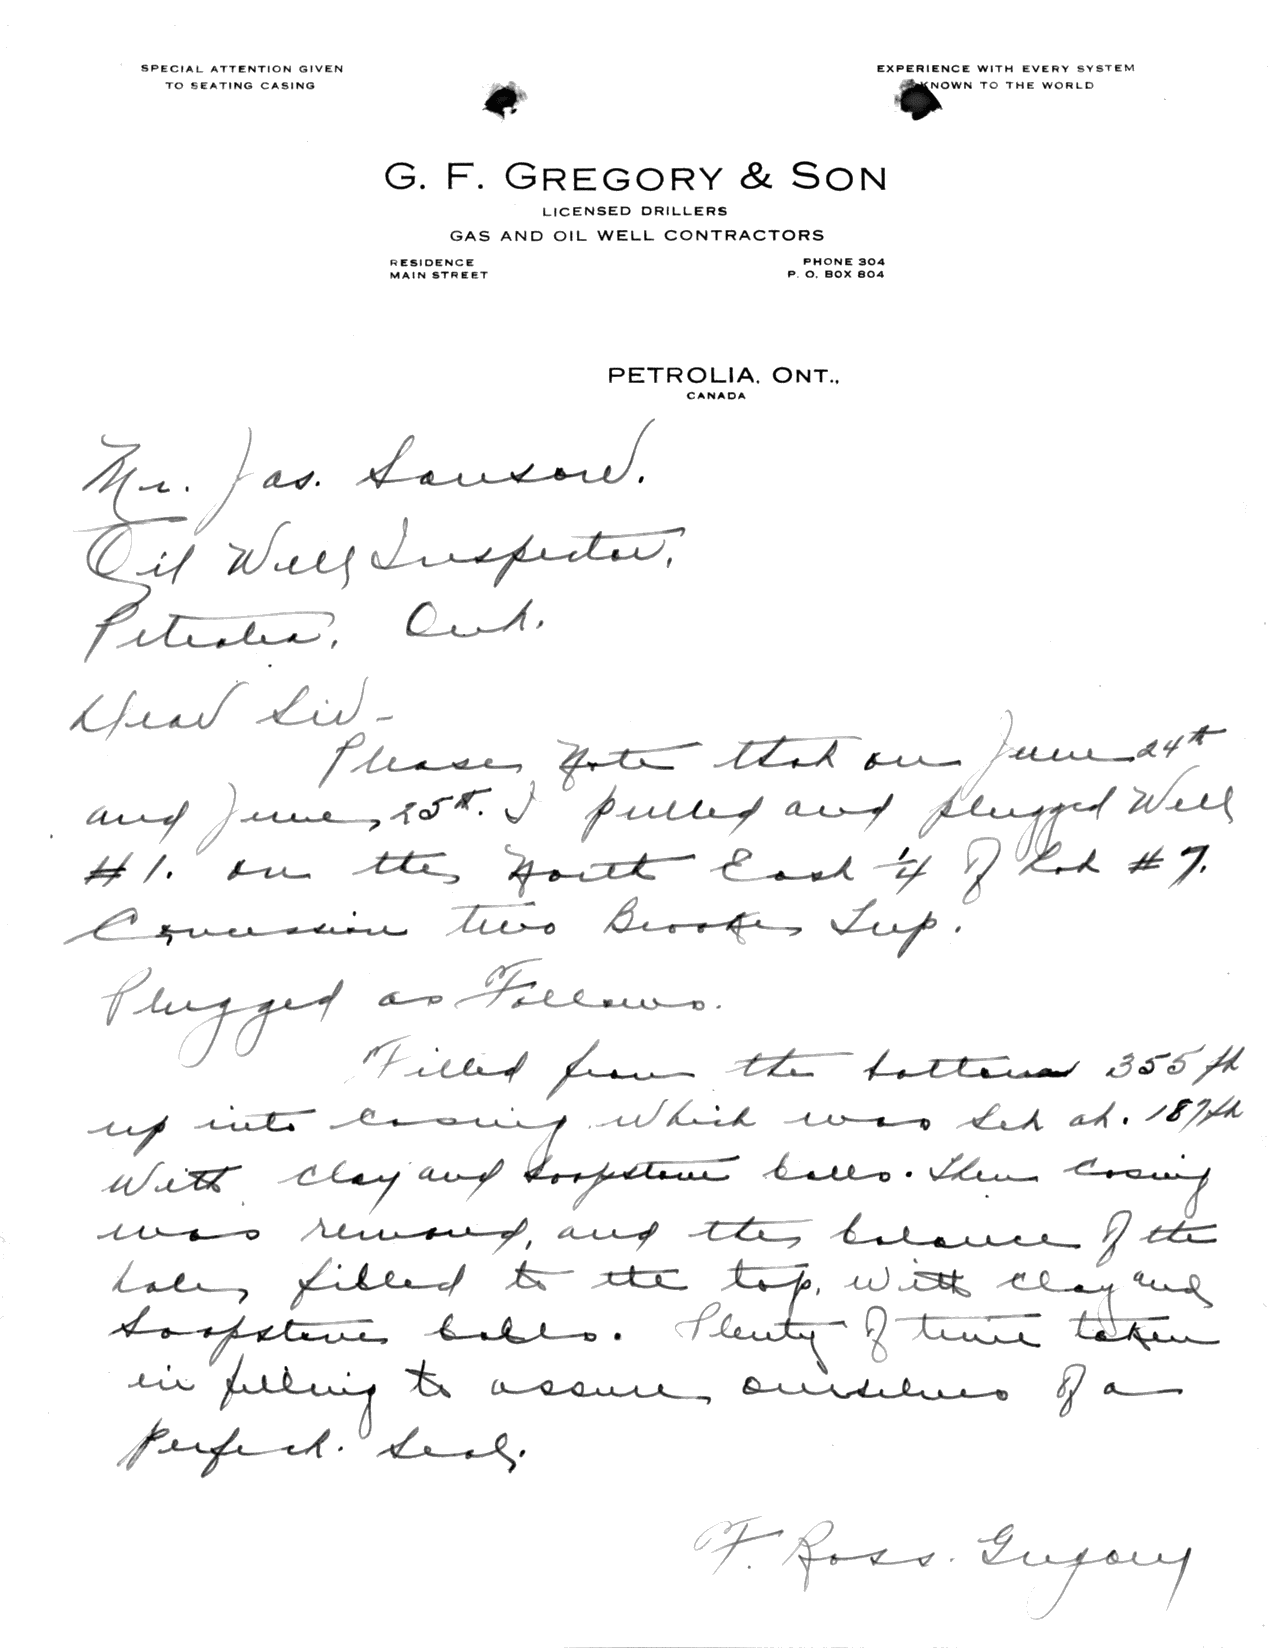 SPECIAL ATTENTION GIVEN
TO SEATING CASING
EXPERIENCE WITH EVERY SYSTEM
KNOWN TO THE WORLD
G. F. GREGORY & SON
LICENSED DRILLERS
GAS AND OIL WELL CONTRACTORS
RESIDENCE
MAIN STREET
PHONE 304
P. O. BOX 804
PETROLIA, ONT.,
CANADA
Mr. Jas.
Oil Well Inspector,
Petrolia, Ont.
Dear Sir -
Please Note that on June 24th
and June 25th. I pulled and plugged Well
# 1. on the North East 1/4 of Lot # 7.
Concession two Brooke Twp.
Plugged as Follows.
Filled from the bottom 355 ft
up into casing which was set at. 187 ft
With clay and soapstone balls. Then casing
was removed, and the balance of the
hole, filled to the top, with clay and
soapstone balls. Plenty of time taken
in filling to assure ourselves of a
perfect. seal.
F. Ross. Gregory